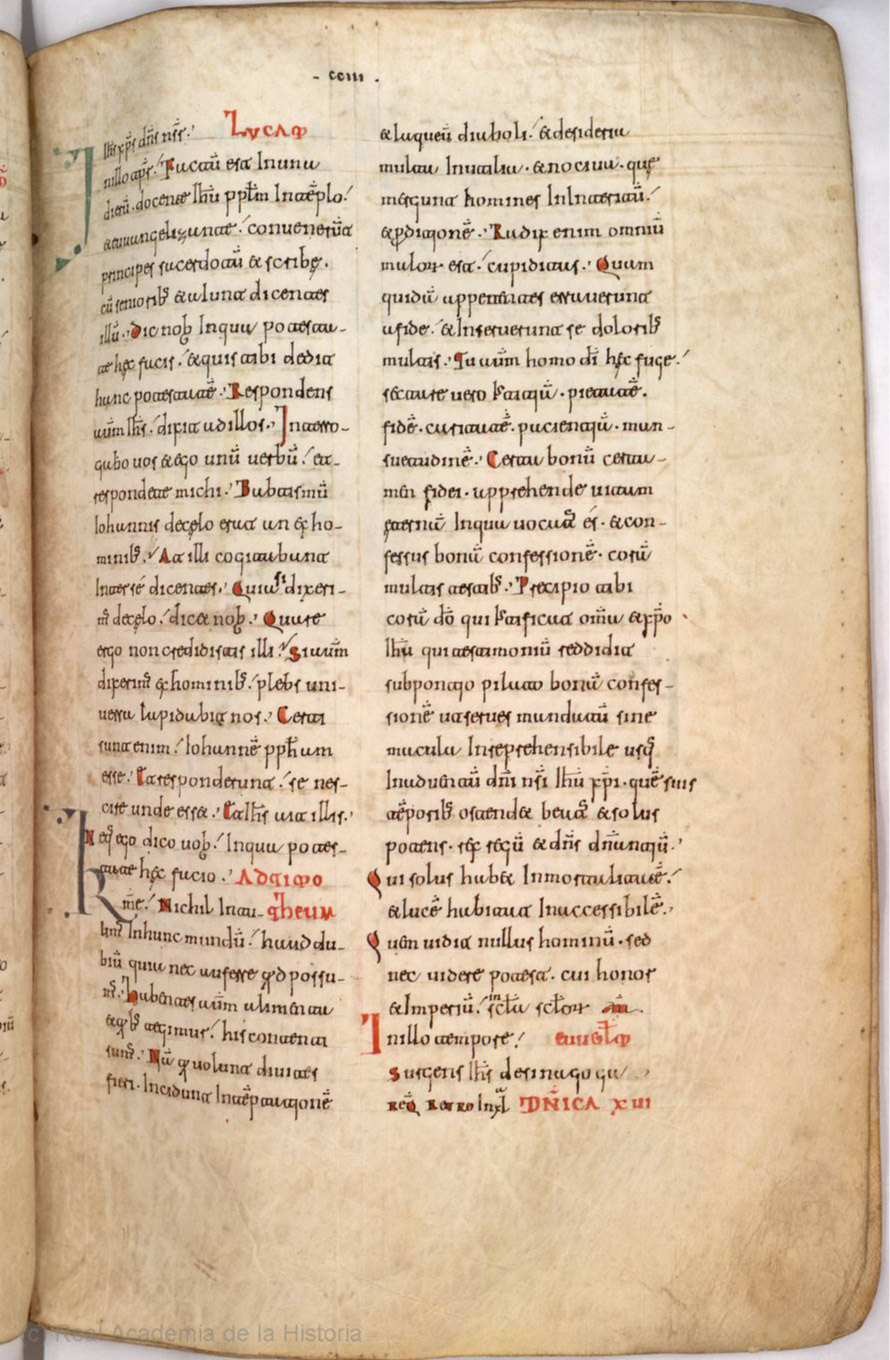 - cciii .
Ihs xp̄s dn̄s nr̄s. LUCAM
In illo tp̄r. Factu est In una
dierū. docente Ihū pp̄lm In tēplo.
& euangelizante. convenerūt
principes sacerdotū & scribę.
cū seniorib; & aiunt dicentes
illū. Dic nob̄ In qua potesta-
te hęc facis. & quis tibi dedit
hanc potestatē. Respondens
autm̄ Ihs̄. dixit ad illos. Interro-
gabo uos & ego unū uerbū. &
respondete michi. Babtismū
Iohannis de cęlo erat an ex ho-
minib;. At illi cogitabant
Inter sé dicentes. Quia si dixeri-
m̄ de cęlo. dicet nob̄. Quare
ergo non credidistis illi. Si autm̄
dixerim̄ ex hominib;. plebs uni-
uersa lapidabit nos. Certi
sunt enim. Iohannē pp̄ham
esse. Et responderunt. se nes-
cire unde esset. Et Ihs̄ ait illis.
Neq; ego dico uob̄. In qua potes-
tate hęc facio. AD TIMO
Km̄e. Nichil Intu- THEUM
lim̄ In hunc mundū. haud du-
biū quia nec auferre qd possu-
m̄. Habentes autm̄ alimenta
& qb; tegimur. his contenti
sum̄. Nā q uolunt diuites
fieri. Incidunt In tēptationē
& laqueū diaboli. & desideria
multa Inutilia. & nociua. quę
mergunt homines In Interitū.
& pditionē. Radix enim omniū
malor̄ est. cupiditas. Quam
quidā appentētes errauerunt
a fide. & Inseruerunt se dolorib;
multis. Tu autm̄ homo dī hęc fuge.
séctare uero Iustitiā. pietatē.
fidē. caritatē. patientiā. man-
suetudinē. Certa bonū certa-
mēn fidei. apprehende uitam
ęternā In qua uocat' és. & con-
fessus bonū confessionē. corā
multis testib;. Precipio tibi
corā dō qui uiuificat omīa & xpō
Ihū qui testimoniū reddidit
sub pontio pilato bonā confes-
sionē ut serues mandatū sine
macula Inreprehensibile usq;
In aduentū dn̄i nr̄i Ihū xp̄i. quē suis
tēporib; ostendet beat' & solus
potens. rex regū & dn̄s dn̄antiū.
Qui solus habet Inmortalitatē.
& lucē habitat Inaccessibilē.
Quēm uidit nullus hominū. sed
nec uidere potest. cui honor
& Imperiū. In sc̄la sc̄lor̄ am̄.
In illo tempore. euuglm
Surgens Ihs̄ de sinagoga
Req̄ retro In xl DN̄ICA XIII
© Real Academia de la Historia